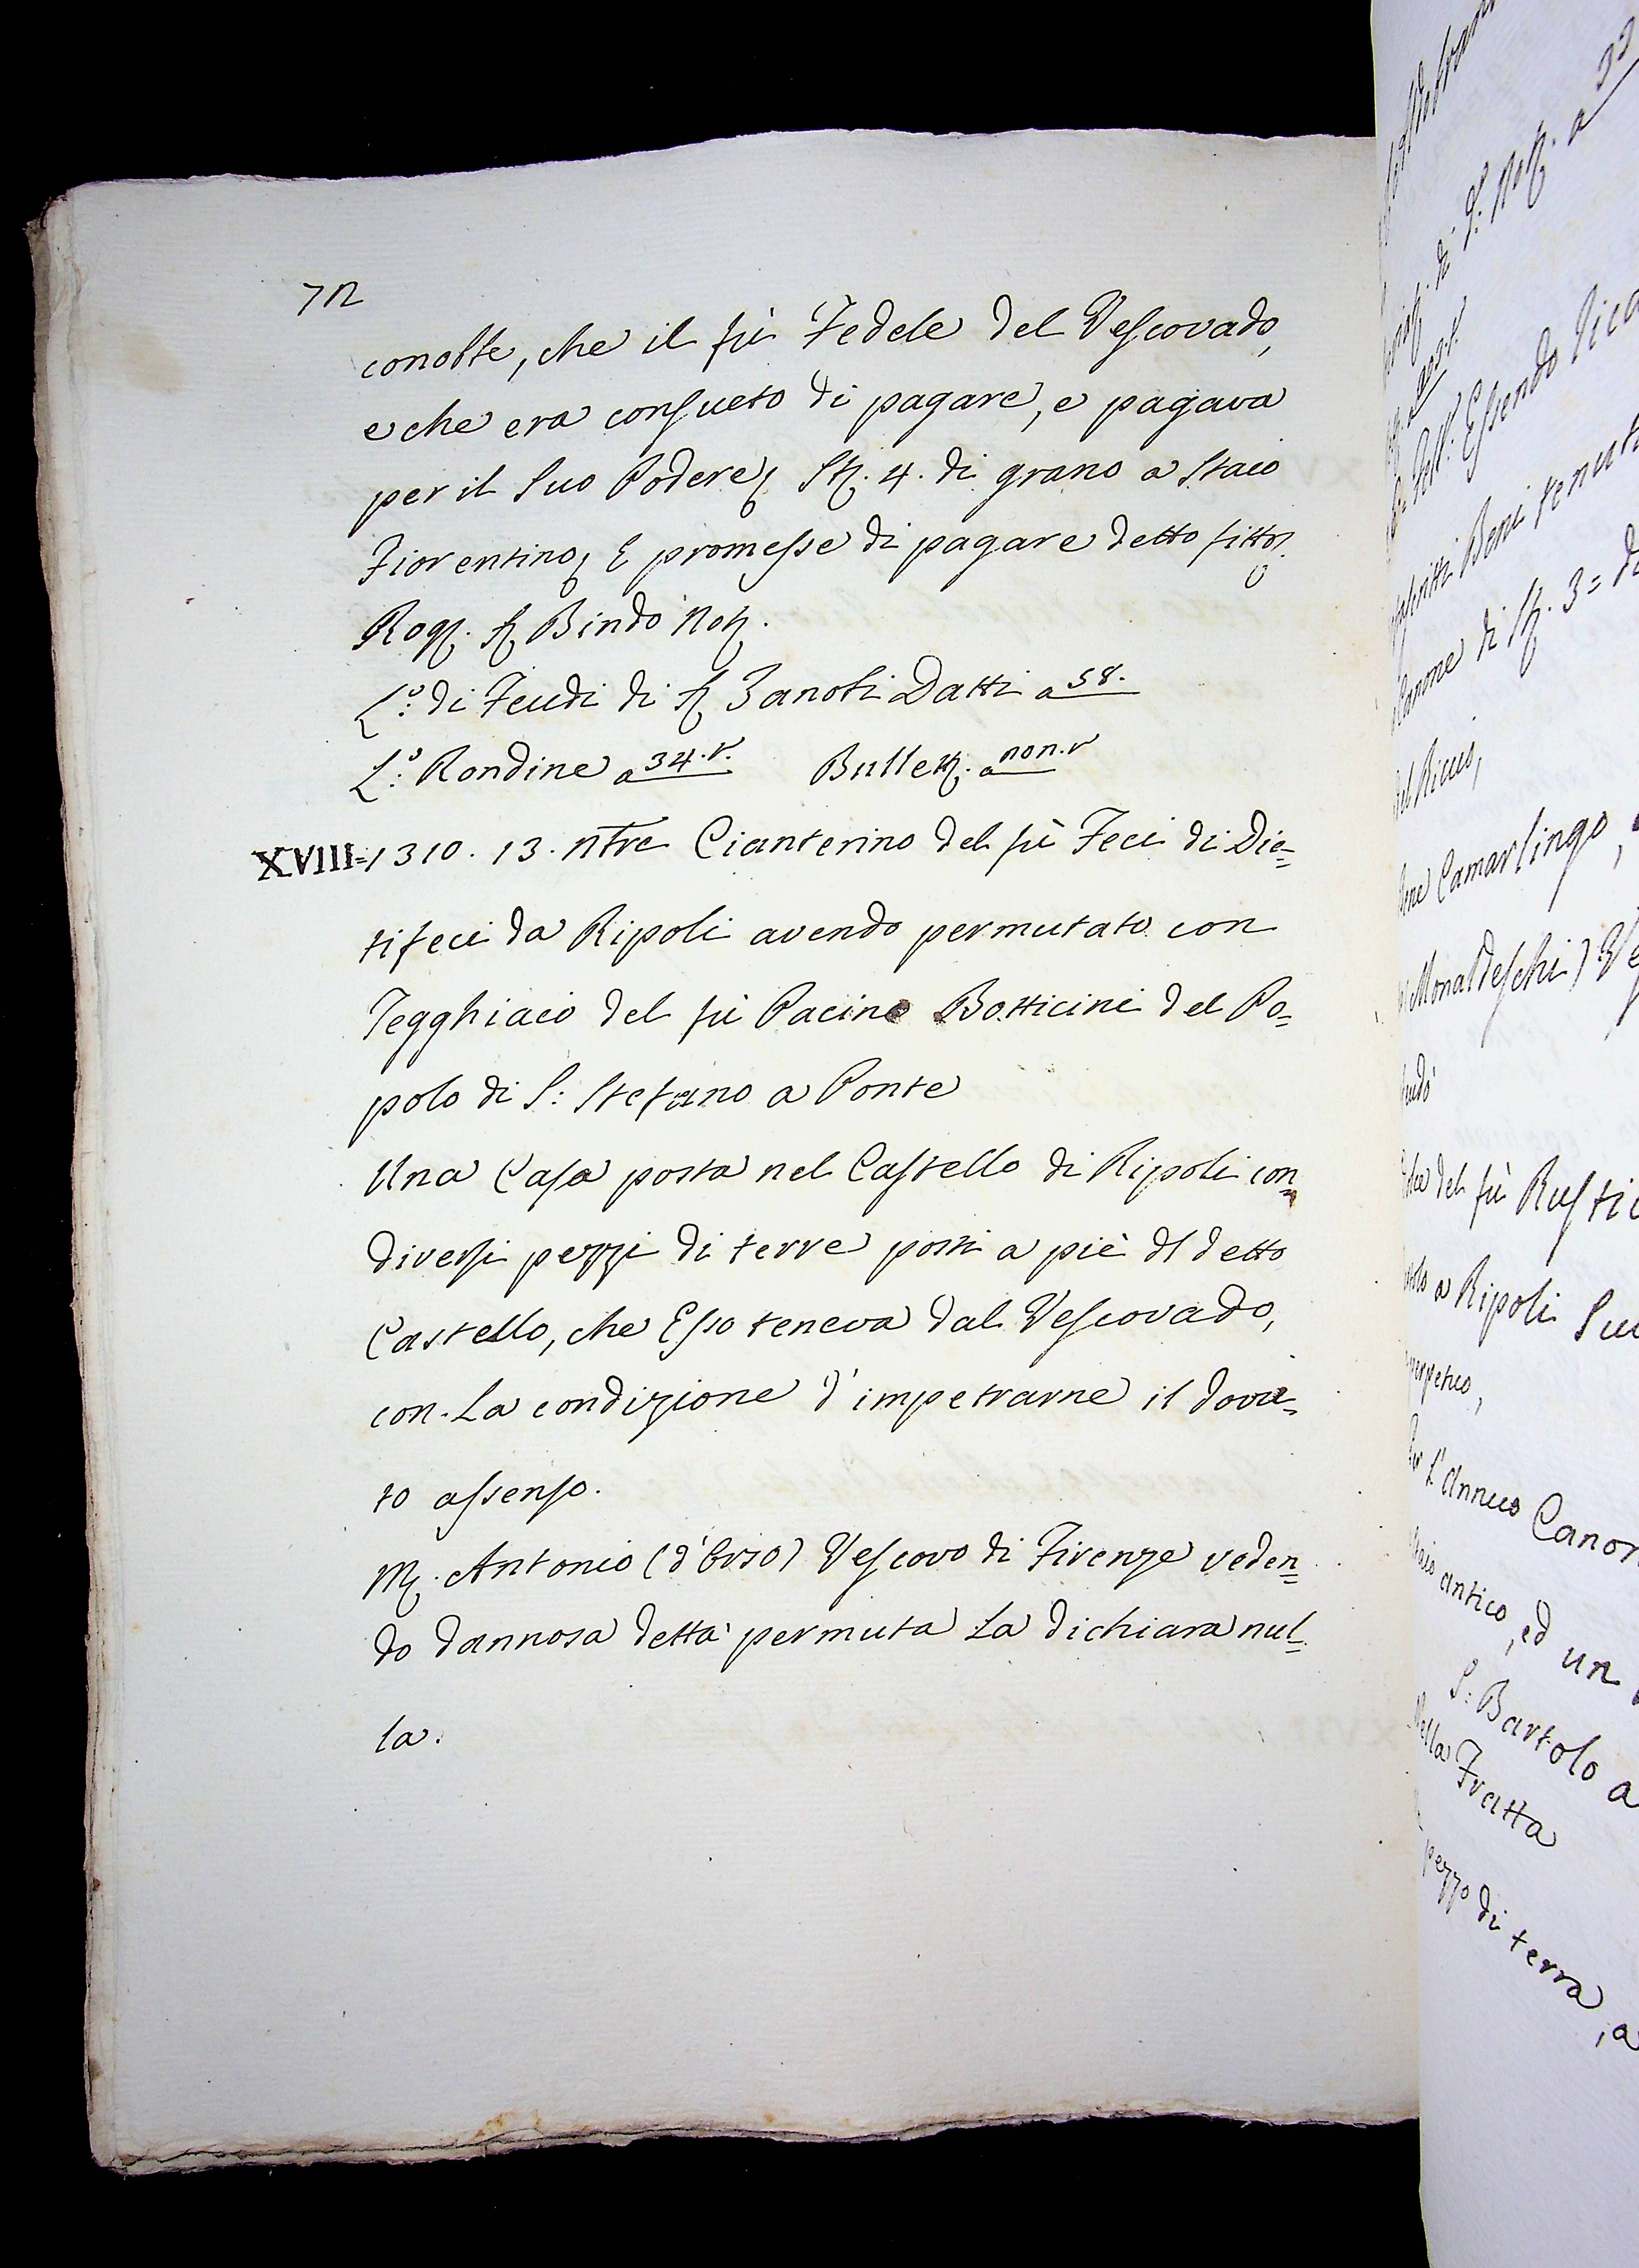 72
conobbe, che il fù Fedele del Vescovado,
e che era consueto di pagare, e pagava
per il Suo Podere St. 4. di grano a Staio
Fiorentino, E promesse di pagare detto fitto.
Rog. Bindo Not.
L.º di Feudi di Zanobi Datti a 58.
L.º Rondine a 34.r. Bullett. a non.r
XVIII=1310. 13. Nbre Cianterino del fù Feci di Die=
tifeci da Ripoli avendo permutato con
Tegghiaio del fù Pacino Botticini del Po=
polo di S: Stefano a Ponte
Una Casa posta nel Castello di Ripoli con=
diversi pezzi di terre posti a piè dl detto
Castello, che Esso teneva dal Vescovado,
con La condizione d'impetrarne il dovu=
to assenso.
M. Antonio (d'Orso) Vescovo di Firenze veden=
do dannosa detta permuta La dichiara nul=
la.
Essendo
Beni tenuti
Canone di St. 3=
del Riccio,
Camarlingo,
Monaldeschi) Ve
del fù Rustic
a Ripoli Su
perpetuo,
L'Annuo Canon
antico, ed un
S: Bartolo a
della Fratta
pezzo di terra, a